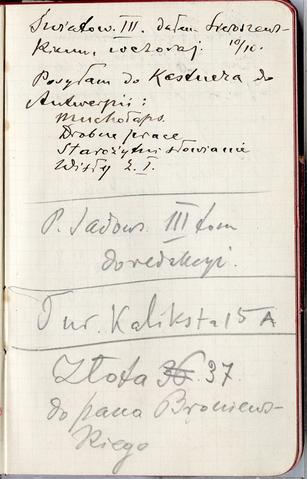 Światow. III. dałem Sieroszew-
kiemu, wczoraj. 10/10.
Posyłam do Kestnera do
Antwerpii:
Muchołaps.
Drobne prace
Starożytni słowianie
Wisły Z. I.
P. Sadows. III tom
do redakcyi.
Tur. Kaliksta 15 A
Złota 36 37.
do pana Broniews-
kiego